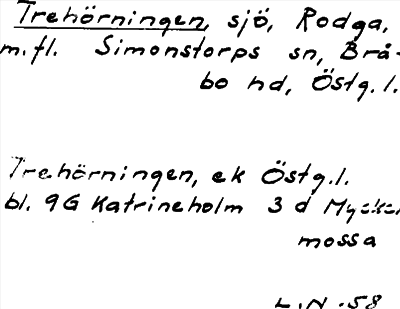 Trehörningen, sjö, Rodga,
m.fl. Simonstorps sn, Brå-
bo hd, Östg.l.
Trehörningen, ek Östg.l.
bl. 9G Katrineholm 3 d
mossa
L.N -58